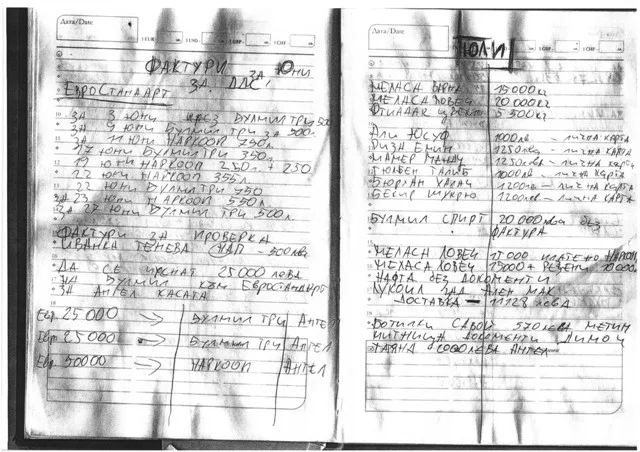 Дата/Date
1 EUR
1 USD
1 GBP
1 CHF
ФАКТУРИ ЗА ЮНИ
ЗА ДДС
ЕВРОСТАНДАРТ
ЗА 3 ЮНИ ЧРЕЗ БУЛМИЛ ТРИ 500
ЗА 9 ЮНИ БУЛМИЛ ТРИ ЗА 500л.
ЗА 11 ЮНИ НАРКООП 750л.
17 ЮНИ БУЛМИЛ ТРИ 350л.
19 ЮНИ НАРКООП 250л. + 250
22 ЮНИ НАРКООП 355л.
22 ЮНИ БУЛМИЛ ТРИ 750
ЗА 23 ЮНИ НАРКООП 550
ЗА 27 ЮНИ БУЛМИЛ ТРИ 500л.
ФАКТУРИ ЗА ПРОВЕРКА
ИВАНКА ТЕНЕВА НАП - 500лева
ДА СЕ 25000 ЛЕВА
БУЛМИЛ КЪМ ЕВРОСТАНДАРТ
ЗА АНГЕЛ КАСАТА
Евр. 25000 → БУЛМИЛ ТРИ АНГЕЛ
Евр. 25000 → БУЛМИЛ ТРИ АНГЕЛ
Евр. 50000 → НАРКООП АНГЕЛ
Дата/Date
1 EUR
1 USD
1 GBP
1 CHF
ЮЛИ
МЕЛАСА ВАРНА 15000кг
МЕЛАСА ЛОВЕЧ 20000кг
5500кг
АЛИ ЮСУФ 1000лв - ЛИЧНА КАРТА
ЕМИН 1250лв - ЛИЧНА КАРТА
МАНДУ 1250лв - ЛИЧНА КАРТА
ГЮЛБЕН ТАЛИБ 1000лв - ЛИЧНА КАРТА
БЮРХАН 1200лв - ЛИЧНА КАРТА
БЕКИР ШУКРЮ 1200лв - ЛИЧНА КАРТА
БУЛМИЛ СПИРТ 20000лва без
ФАКТУРА
МЕЛАСА ЛОВЕЧ 15000 ПЛАТЕНО НАРКООП
МЕЛАСА ЛОВЕЧ 15000 + РЕЗЕНИ 10000
НАФТА БЕЗ ДОКУМЕНТИ
ЛУКОИЛ ЗАД АЛЕН МАК
ДОСТАВКА - 11128 ЛЕВА
БОТИЛКИ САВОЙ 570 ЛЕВА МЕТИН
МИТНИЦА ДОКУМЕНТИ ДИМО И
ТАЯНА ЛЕВА АНГЕЛ